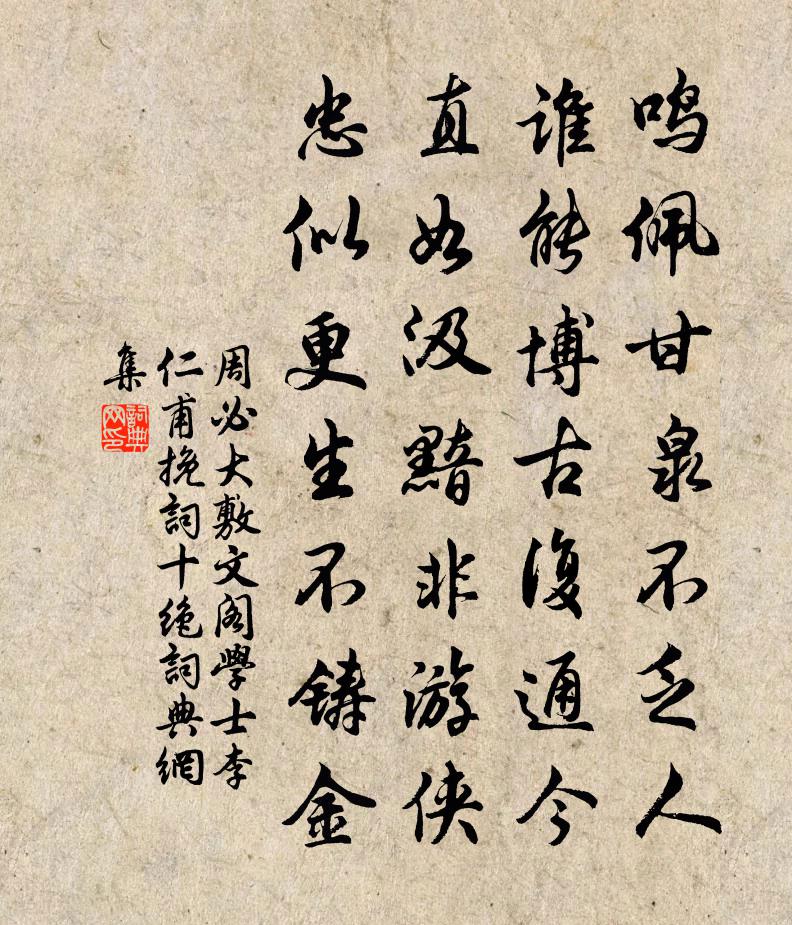 鸣佩甘泉不乏人
谁能博古復通今
直如汲黯非游侠
忠似更生不铸金
周必大敷文阁學士李
仁甫挽詞十绝詞典網
集
詞典
网印